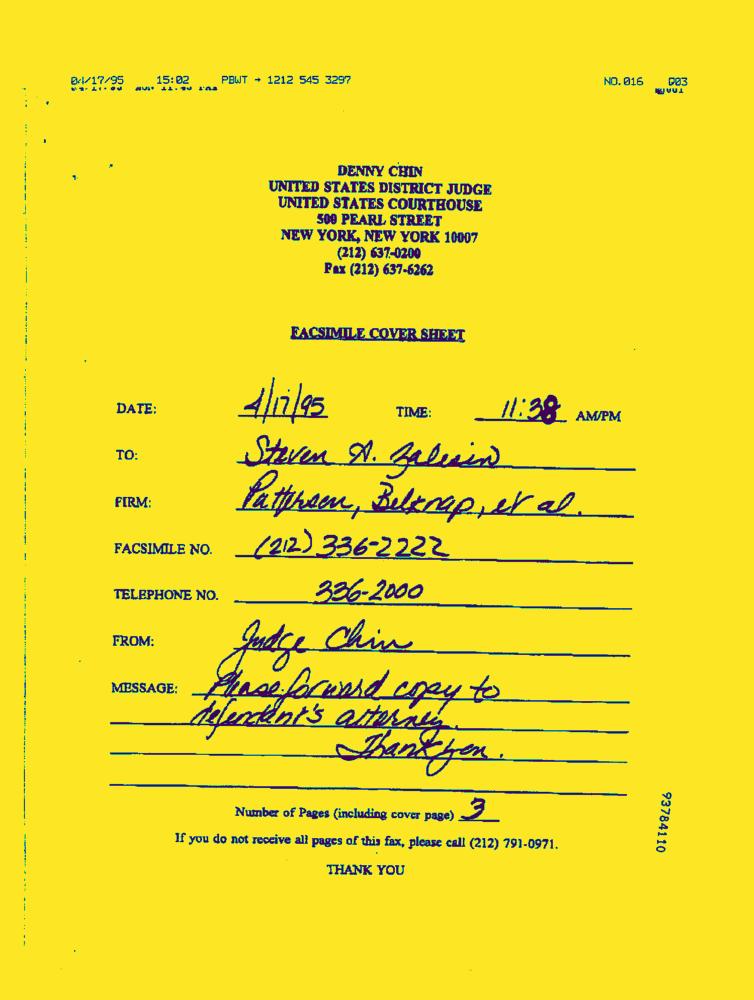 04/17/95 15:02 PBWT → 1212 545 3297 NO.016 003
DENNY CHIN
UNITED STATES DISTRICT JUDGE
UNITED STATES COURTHOUSE
500 PEARL STREET
NEW YORK, NEW YORK 10007
(212) 637-0200
Fax (212) 637-6262
FACSIMILE COVER SHEET
DATE: 4/17/95 TIME: 11:38 AM/PM
TO: Steven A. Zalesin
FIRM: Patterson, Belknap, et al.
FACSIMILE NO. (212) 336-2222
TELEPHONE NO. 336-2000
FROM: Judge Chin
MESSAGE: Please forward copy to
defendant's attorney.
Thank you.
Number of Pages (including cover page) 3
If you do not receive all pages of this fax, please call (212) 791-0971.
THANK YOU
93784110